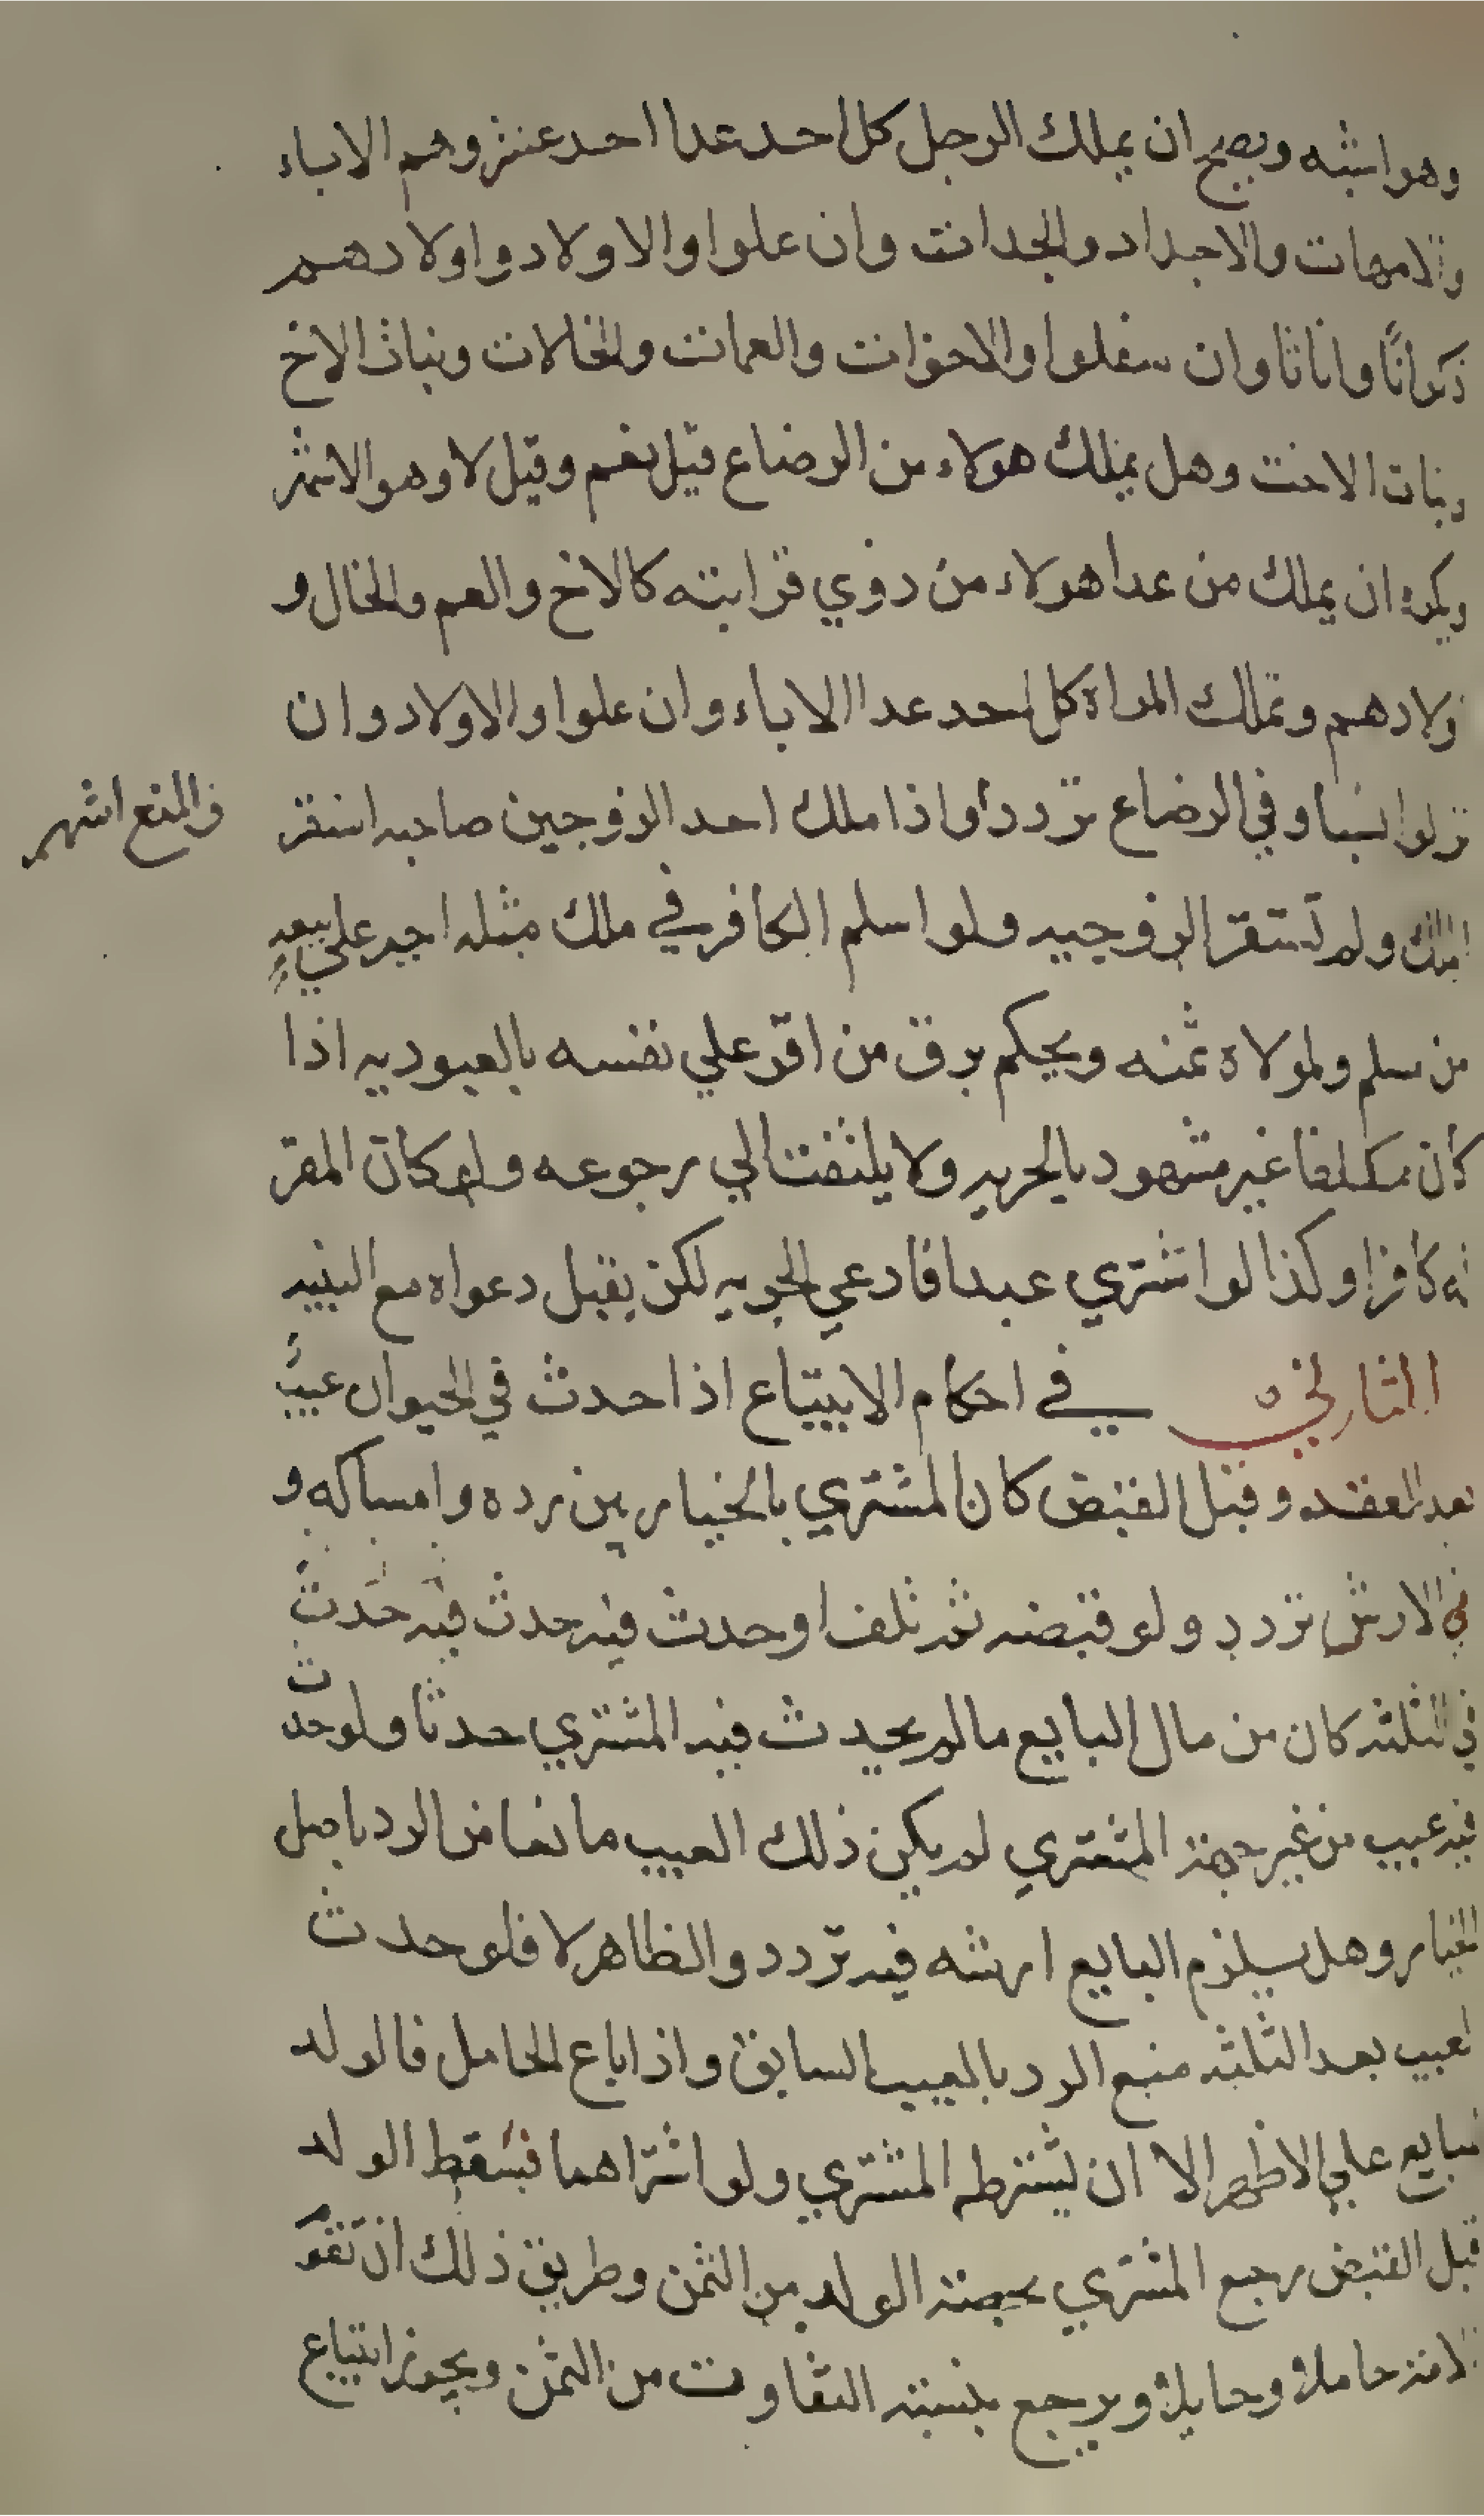 وهو اشبه ويصح ان يملك الرجل كل احد عدا احد عشر وهم الاباء
والامهات والاجداد والجدات وان علوا والاولاد واولادهم
ذكرانًا واناثا وان سفلوا والاخوات والعمات والخالات وبنات الاخ
وبنات الاخت وهل يملك هولاء من الرضاع قيل نعم وقيل لا وهو الاشهر
ويكره ان يملك من عدا هولاء من ذوي قرابته كالاخ والعم والخال و
اولادهم وتملك المراة كل احد عدا الاباء وان علوا والاولاد وان
نزلوا نسبا وفي الرضاع تردد واذا ملك احد الزوجين صاحبه استقر
والمنع اشهر
الملك ولم تستقر الزوجيه ولو اسلم الكافر في ملك مثله اجبر علي بيعه
من مسلم ولمولاه ثمنه ويحكم برق من اقر علي نفسه بالعبوديه اذا
كان مكلفا غير مشهود بالحريه ولا يلتفت الي رجوعه ولو كان المقر
له كافرا وكذا لو اشتري عبدا فادعي الحريه لكن يقبل دعواه مع البينه
الثاني في احكام الابتياع اذا حدث في الحيوان عيب
بعد العقد وقبل القبض كان المشتري بالخيار بين رده وامساكه و
في الارش تردد ولو قبضه ثم تلف او حدث فيه حدث فيه حدث
في الثلثه كان من مال البايع ما لم يحدث فيه المشتري حدثا ولو حدث
فيه عيب من غير جهة المشتري لم يكن ذلك العيب مانعا من الرد باصل
الخيار وهل يلزم البايع ارشه فيه تردد والظاهر لا فلو حدث
العيب بعد الثلثه منع الرد بالعيب السابق واذا باع الحامل فالولد
للبايع علي الاظهر الا ان يشترطه المشتري ولو اشتراهما فسقط الولد
قبل القبض رجع المشتري بحصة الولد من الثمن وطريق ذلك ان تقوم
الامة حاملا وحايلا ويرجع بنسبة التفاوت من الثمن ويجوز ابتياع